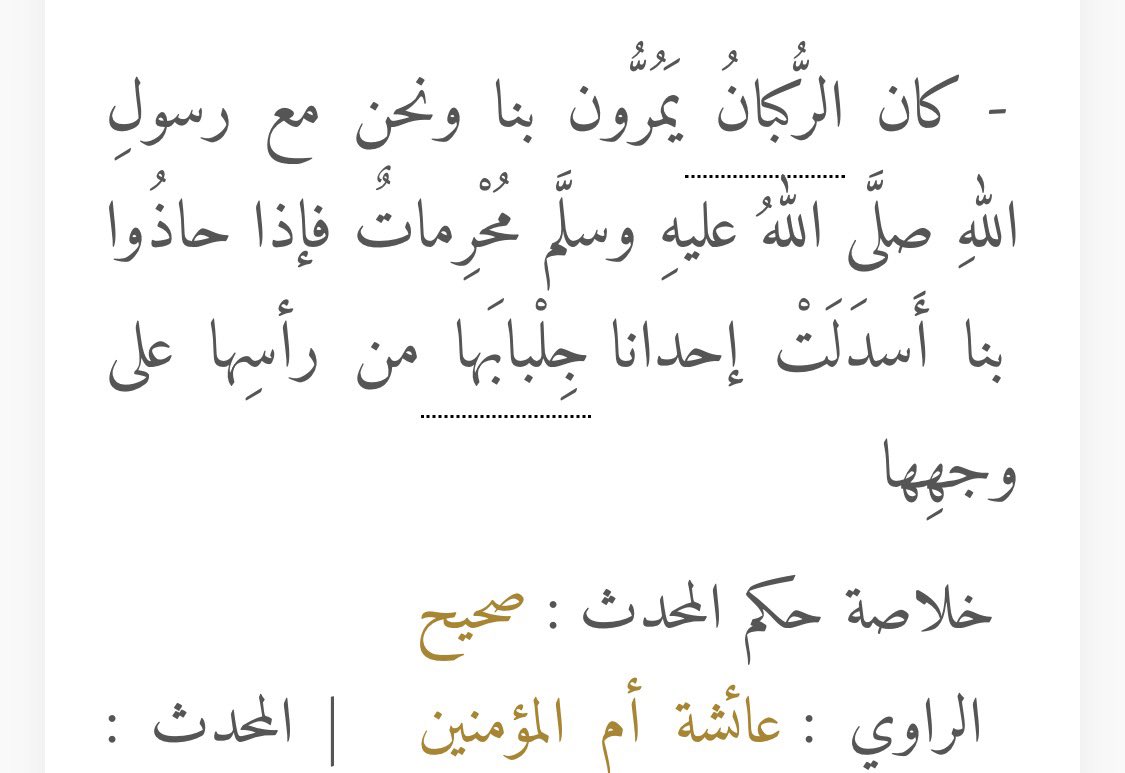 - كان الرُّكبانُ يَمُرُّون بنا ونحن مع رسولِ
اللهِ صلَّى اللهُ عليهِ وسلَّم مُحْرِماتٌ فإذا حاذُوا
بنا أَسدَلَتْ إحدانا جِلْبابَها من رأسِها على
وجهِها
خلاصة حكم المحدث : صحيح
الراوي : عائشة أم المؤمنين | المحدث :